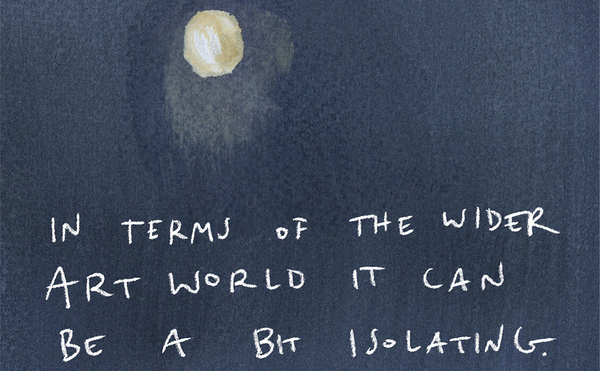 IN TERMS OF THE WIDER
ART WORLD IT CAN
BE A BIT ISOLATING.